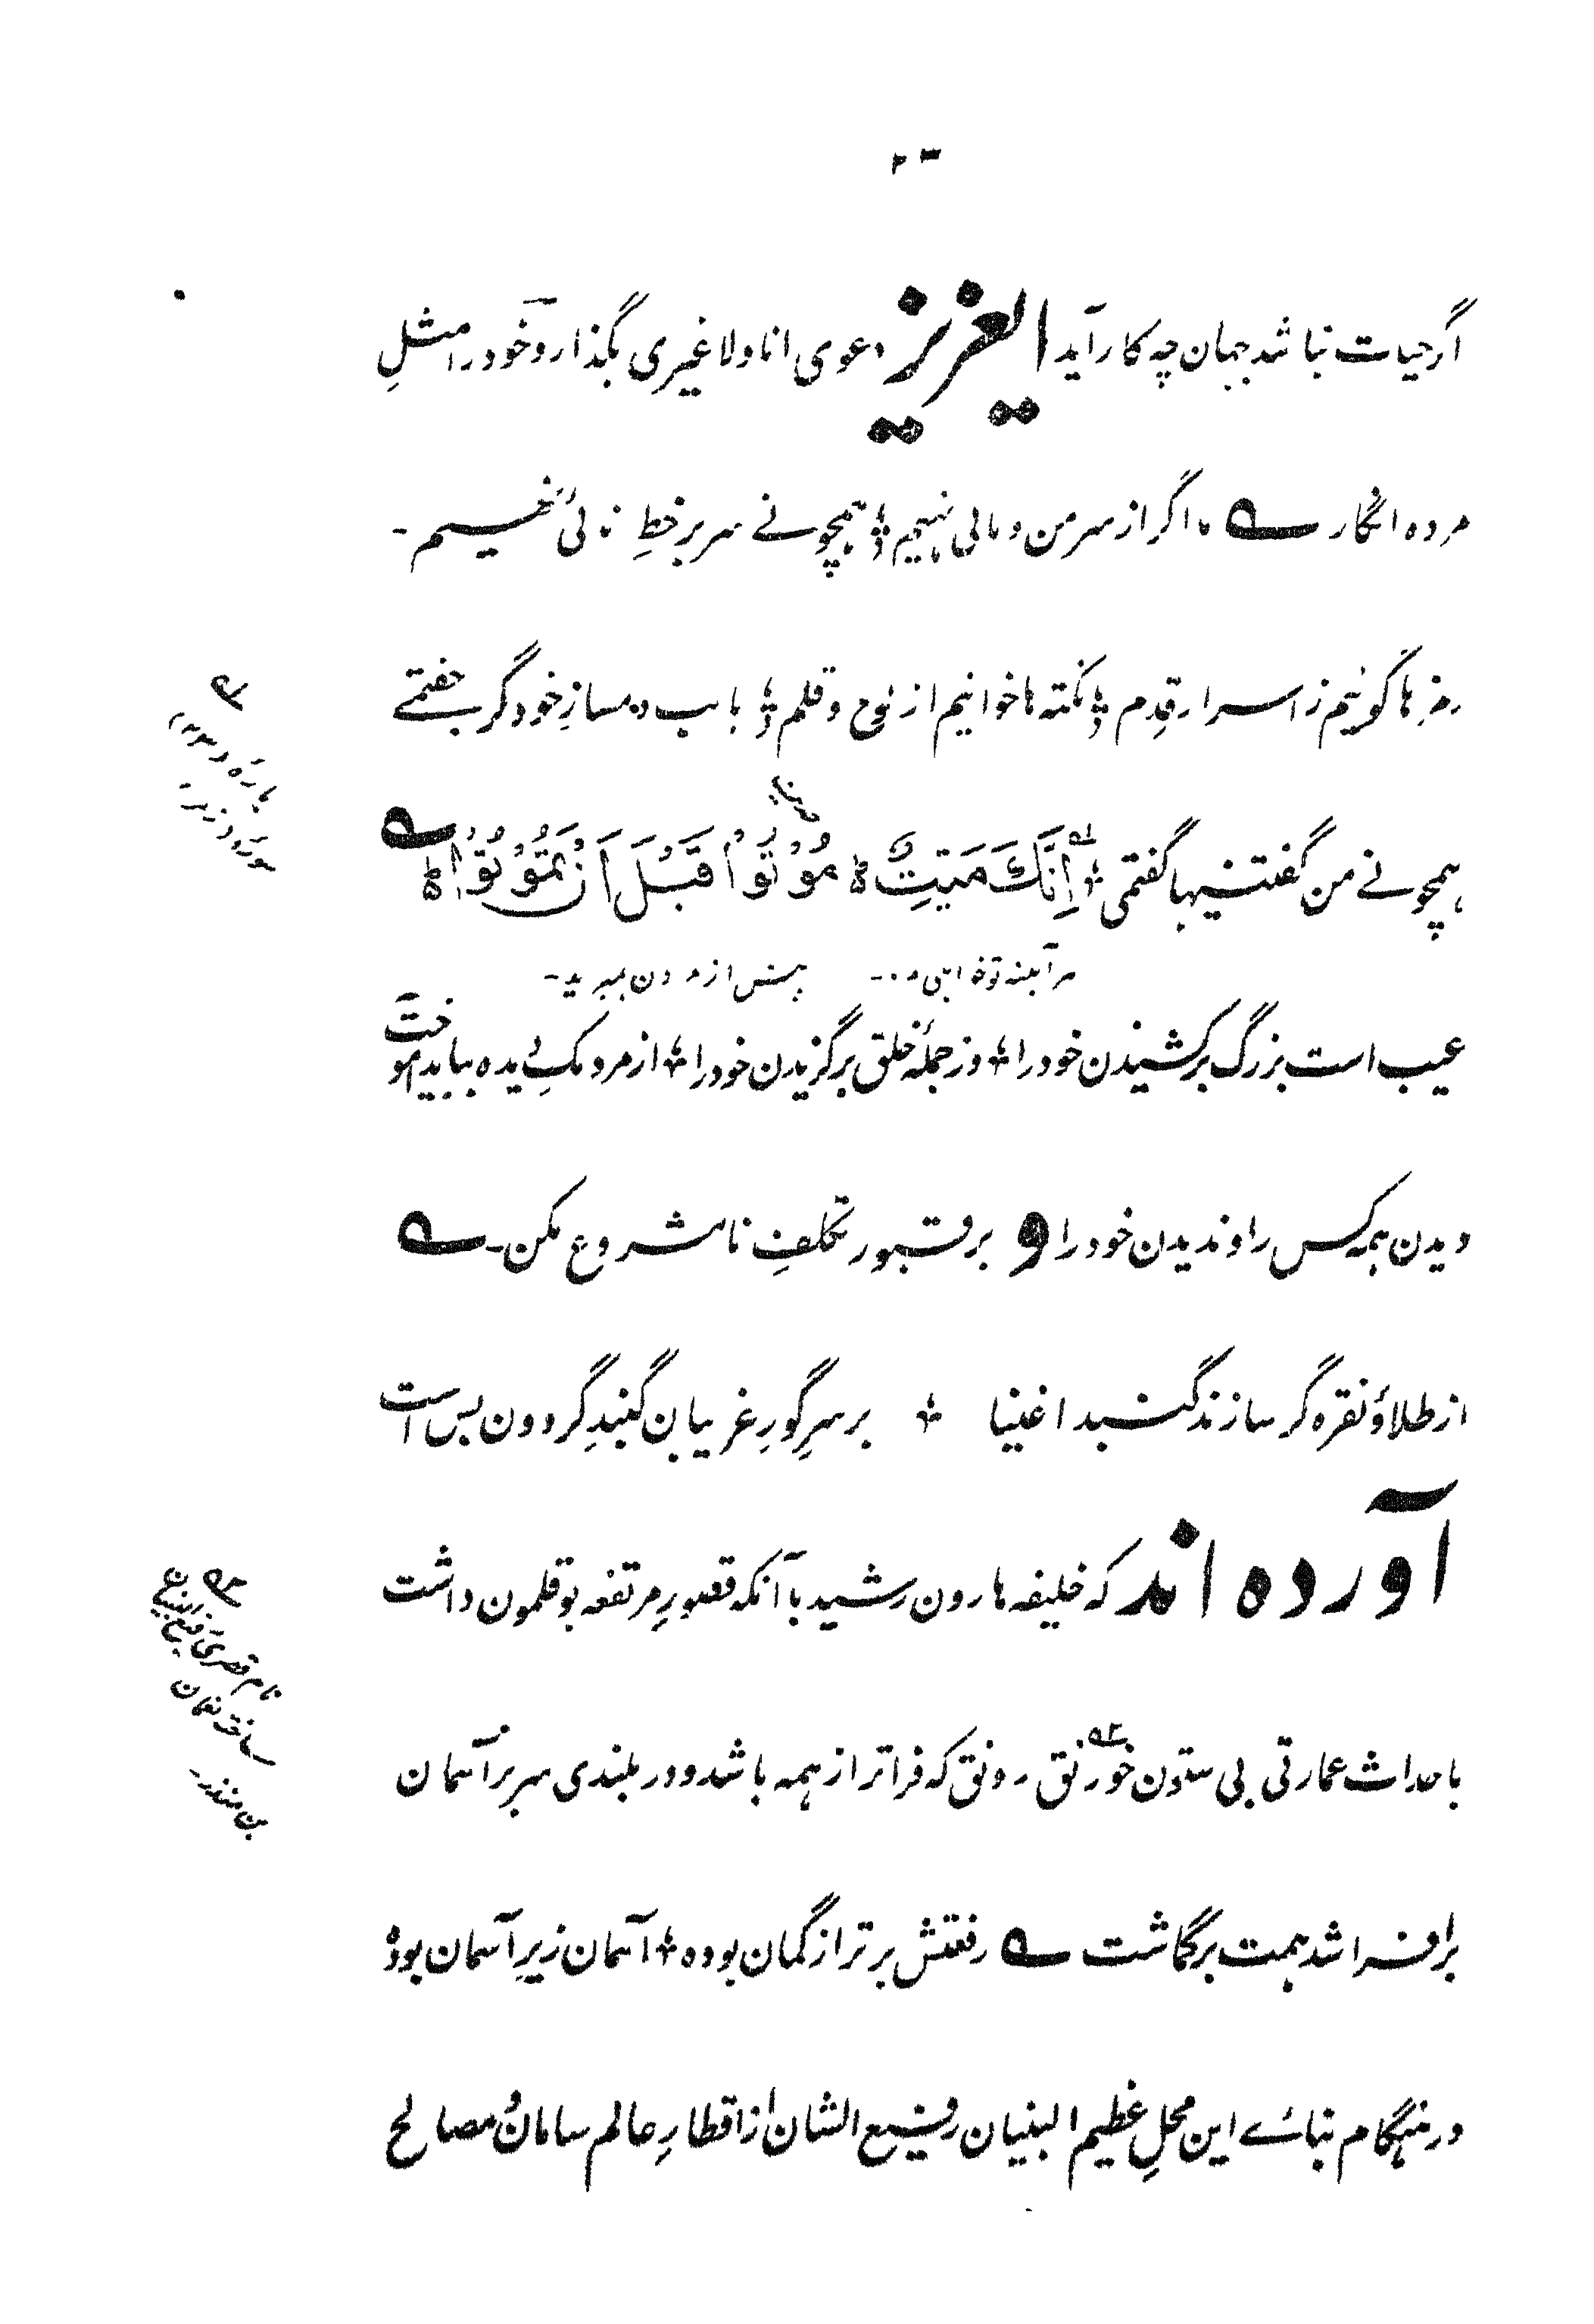 اگر حیات نباشد جہان چہ کار آید ایعزیز دعوی انا ولا غیری بگذار و خود را مثلِ
مردہ انگار ؎ ما اگر از سر من و مائی نہیم ؛ ہمچو نے سر بر خطِ نائی نہیم ۔
رمزہا گوئیم ز اسرارِ قدم ؛ نکتہ ہا خوانیم از لوح و قلم ؛ بالب دمسازِ خود گر جفتمے
ہمچو نے من گفتنیہا گفتمی ؛ اِنَّكَ مَيِّتٌ ؕ مُوْتُوْا قَبْلَ اَنْ تَمُوْتُوْا ؕ ؎
ہر آیینہ تو خواہی مرد ۔ پیش از مردن بمیرید ۔
عیب است بزرگ برکشیدن خود را ؛ وز جملۂ خلق برگزیدن خود را ؛ از مردمکِ دیدہ بباید آموخت
دیدن ہمہ کس را و ندیدن خود را و بر قبور تکلفِ نامشروع مکن ۔ ؎
از طلا و نقرہ گر سازند گنبد اغنیا ؛ بر سرِ گورِ غریبان گنبدِ گردون بس است
آوردہ اند کہ خلیفہ ہارون رشید با آنکہ قصورِ مرتفعہ بوقلمون داشت
باحداث عمارتی بی ستون خورنق رونق کہ فراتر از ہمہ باشد و در بلندی سر بر آسمان
برافراشد ہمت برگماشت ؎ رفعتش برتر از گمان بودہ ؛ آسمان زیرِ آسمان بودہ
در ہنگام بنائے این محلِ عظیم البنیان رفیع الشان از اقطارِ عالم سامان و مصالح
پارہ (۲۳)
سورہ زمر
نام قصری
ساختہ نعمان
بن منذر ۔